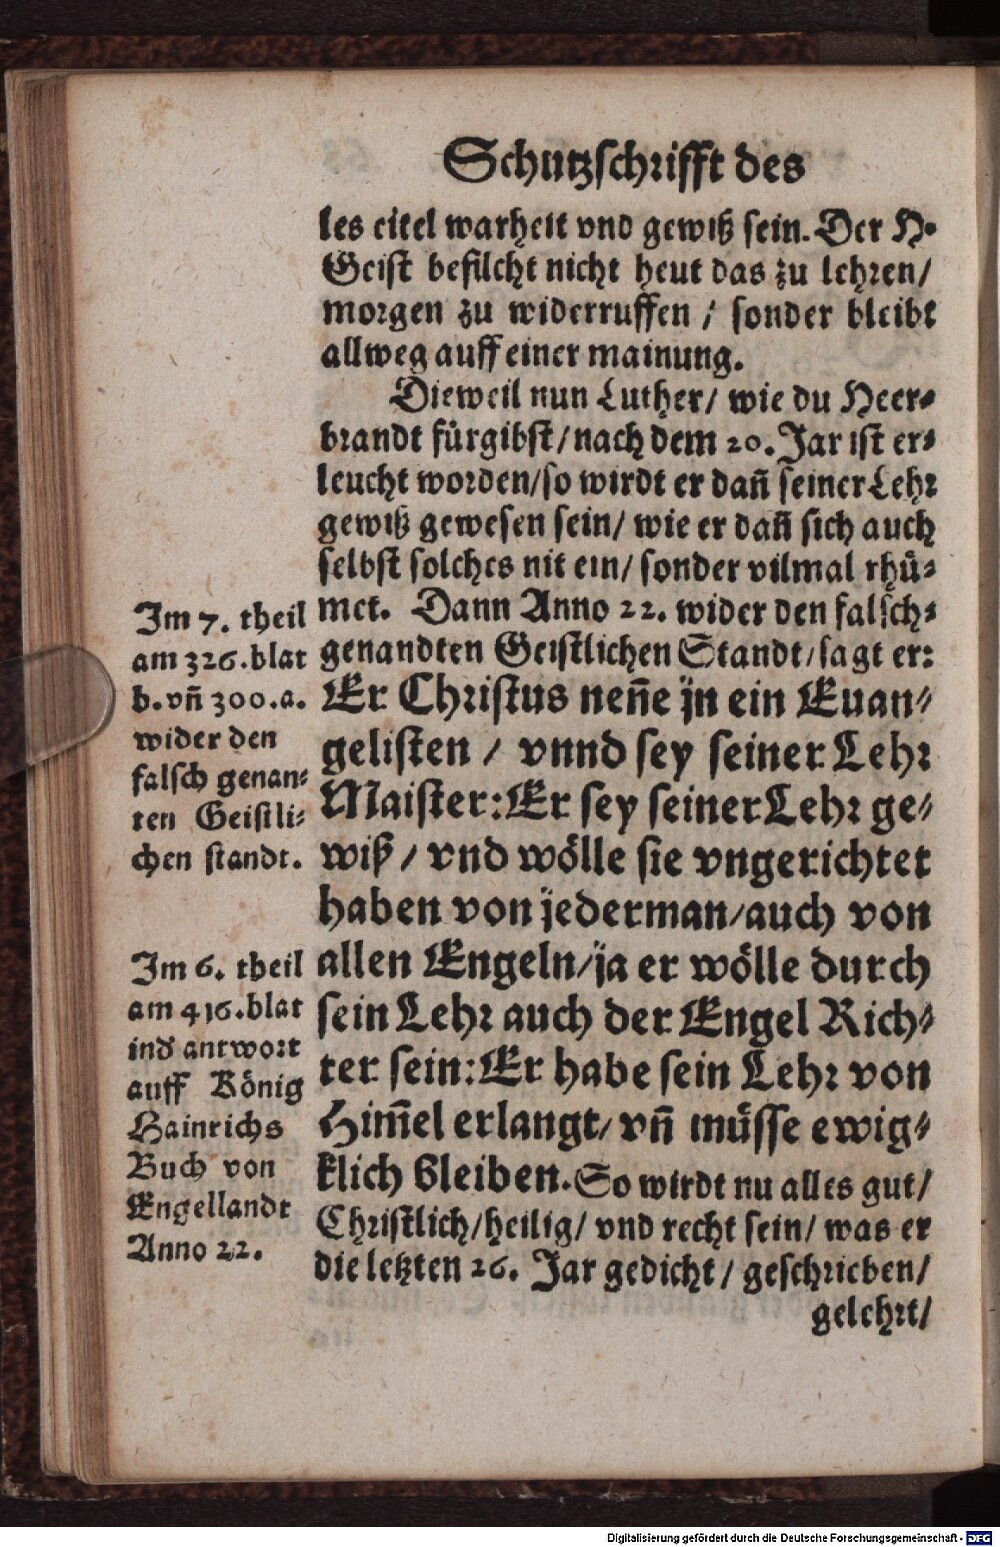 Schutzschrifft des
les eitel warheit vnd gewiß sein. Der H.
Geist befilcht nicht heut das zu lehren/
morgen zu widerruffen / sonder bleibt
allweg auff einer mainung.
Dieweil nun Luther/ wie du Heer⸗
brandt fürgibst/ nach dem 20. Jar ist er⸗
leucht worden/ so wirdt er dañ seiner Lehr
gewiß gewesen sein/ wie er dañ sich auch
selbst solches nit ein/ sonder vilmal rhü⸗
met. Dann Anno 22. wider den falsch⸗
genandten Geistlichen Standt/ sagt er:
Er Christus neñe jn ein Euan⸗
gelisten / vnnd sey seiner Lehr
Maister: Er sey seiner Lehr ge⸗
wiß / vnd wölle sie vngerichtet
haben von jederman/ auch von
allen Engeln/ ja er wölle durch
sein Lehr auch der Engel Rich⸗
ter sein: Er habe sein Lehr von
Him̃el erlangt/ vñ müsse ewig⸗
klich bleiben. So wirdt nu alles gut/
Christlich/ heilig/ vnd recht sein/ was er
die letzten 26. Jar gedicht / geschrieben/
gelehrt/
Im 7. theil
am 326. blat
b. vñ 300. a.
wider den
falsch genan⸗
ten Geistli⸗
chen standt.
Im 6. theil
am 416. blat
ind antwort
auff König
Hainrichs
Buch von
Engellandt
Anno 22.
Digitalisierung gefördert durch die Deutsche Forschungsgemeinschaft - DFG